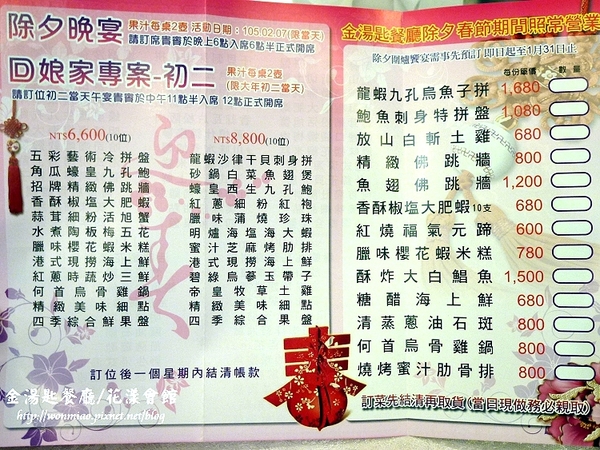 除夕晚宴
果汁每桌2壺 活動日期：105.02.07(限當天)
請訂席賓賓於晚上6點入席6點半正式開席
回娘家專案-初二
果汁每桌2壺
(限大年初二當天)
請訂位初二當天午宴賓賓於中午11點半入席 12點正式開席
NT$6,600(10位)
五彩藝術冷拼盤
角瓜蠔皇九孔鮑
招牌精緻佛跳牆
香酥椒塩大肥蝦
蒜茸細粉活旭蟹
水煮陶板梅五花
臘味櫻花蝦米糕
港式現撈海上鮮
紅蔥時蔬炒三鮮
何首烏骨雞鍋
精緻美味細點
四季綜合鮮果盤
NT$8,800(10位)
龍蝦沙律干貝刺身拼
砂鍋白菜魚翅煲
蠔皇西生九孔鮑
紅蔥細粉紅袍
臘味蒲燒珍珠
明爐海塩海大蝦
蜜汁芝麻烤肋排
港式現撈海上鮮
碧綠烏蔘玉帶子
帝皇牧草土雞
精緻美味細點
四季綜合鮮果盤
訂位後一個星期內結清帳款
迎春
金湯匙餐廳除夕春節期間照常營業
除夕圍爐饗宴需事先預訂 即日起至1月31日止
每份單價 數量
龍蝦九孔烏魚子拼 1,680
鮑魚刺身特拼盤 1,080
放山白斬土雞 680
精緻佛跳牆 800
魚翅佛跳牆 1,200
香酥椒塩大肥蝦10支 680
紅燒福氣元蹄 600
臘味櫻花蝦米糕 780
酥炸大白鯧魚 1,500
糖醋海上鮮 680
清蒸蔥油石斑 800
何首烏骨雞鍋 800
燒烤蜜汁肋骨排 800
訂菜先結清再取貨(當日現做務必親取)
春
金湯匙餐廳/花漾會館
http://wonmiao.pixnet.net/blog